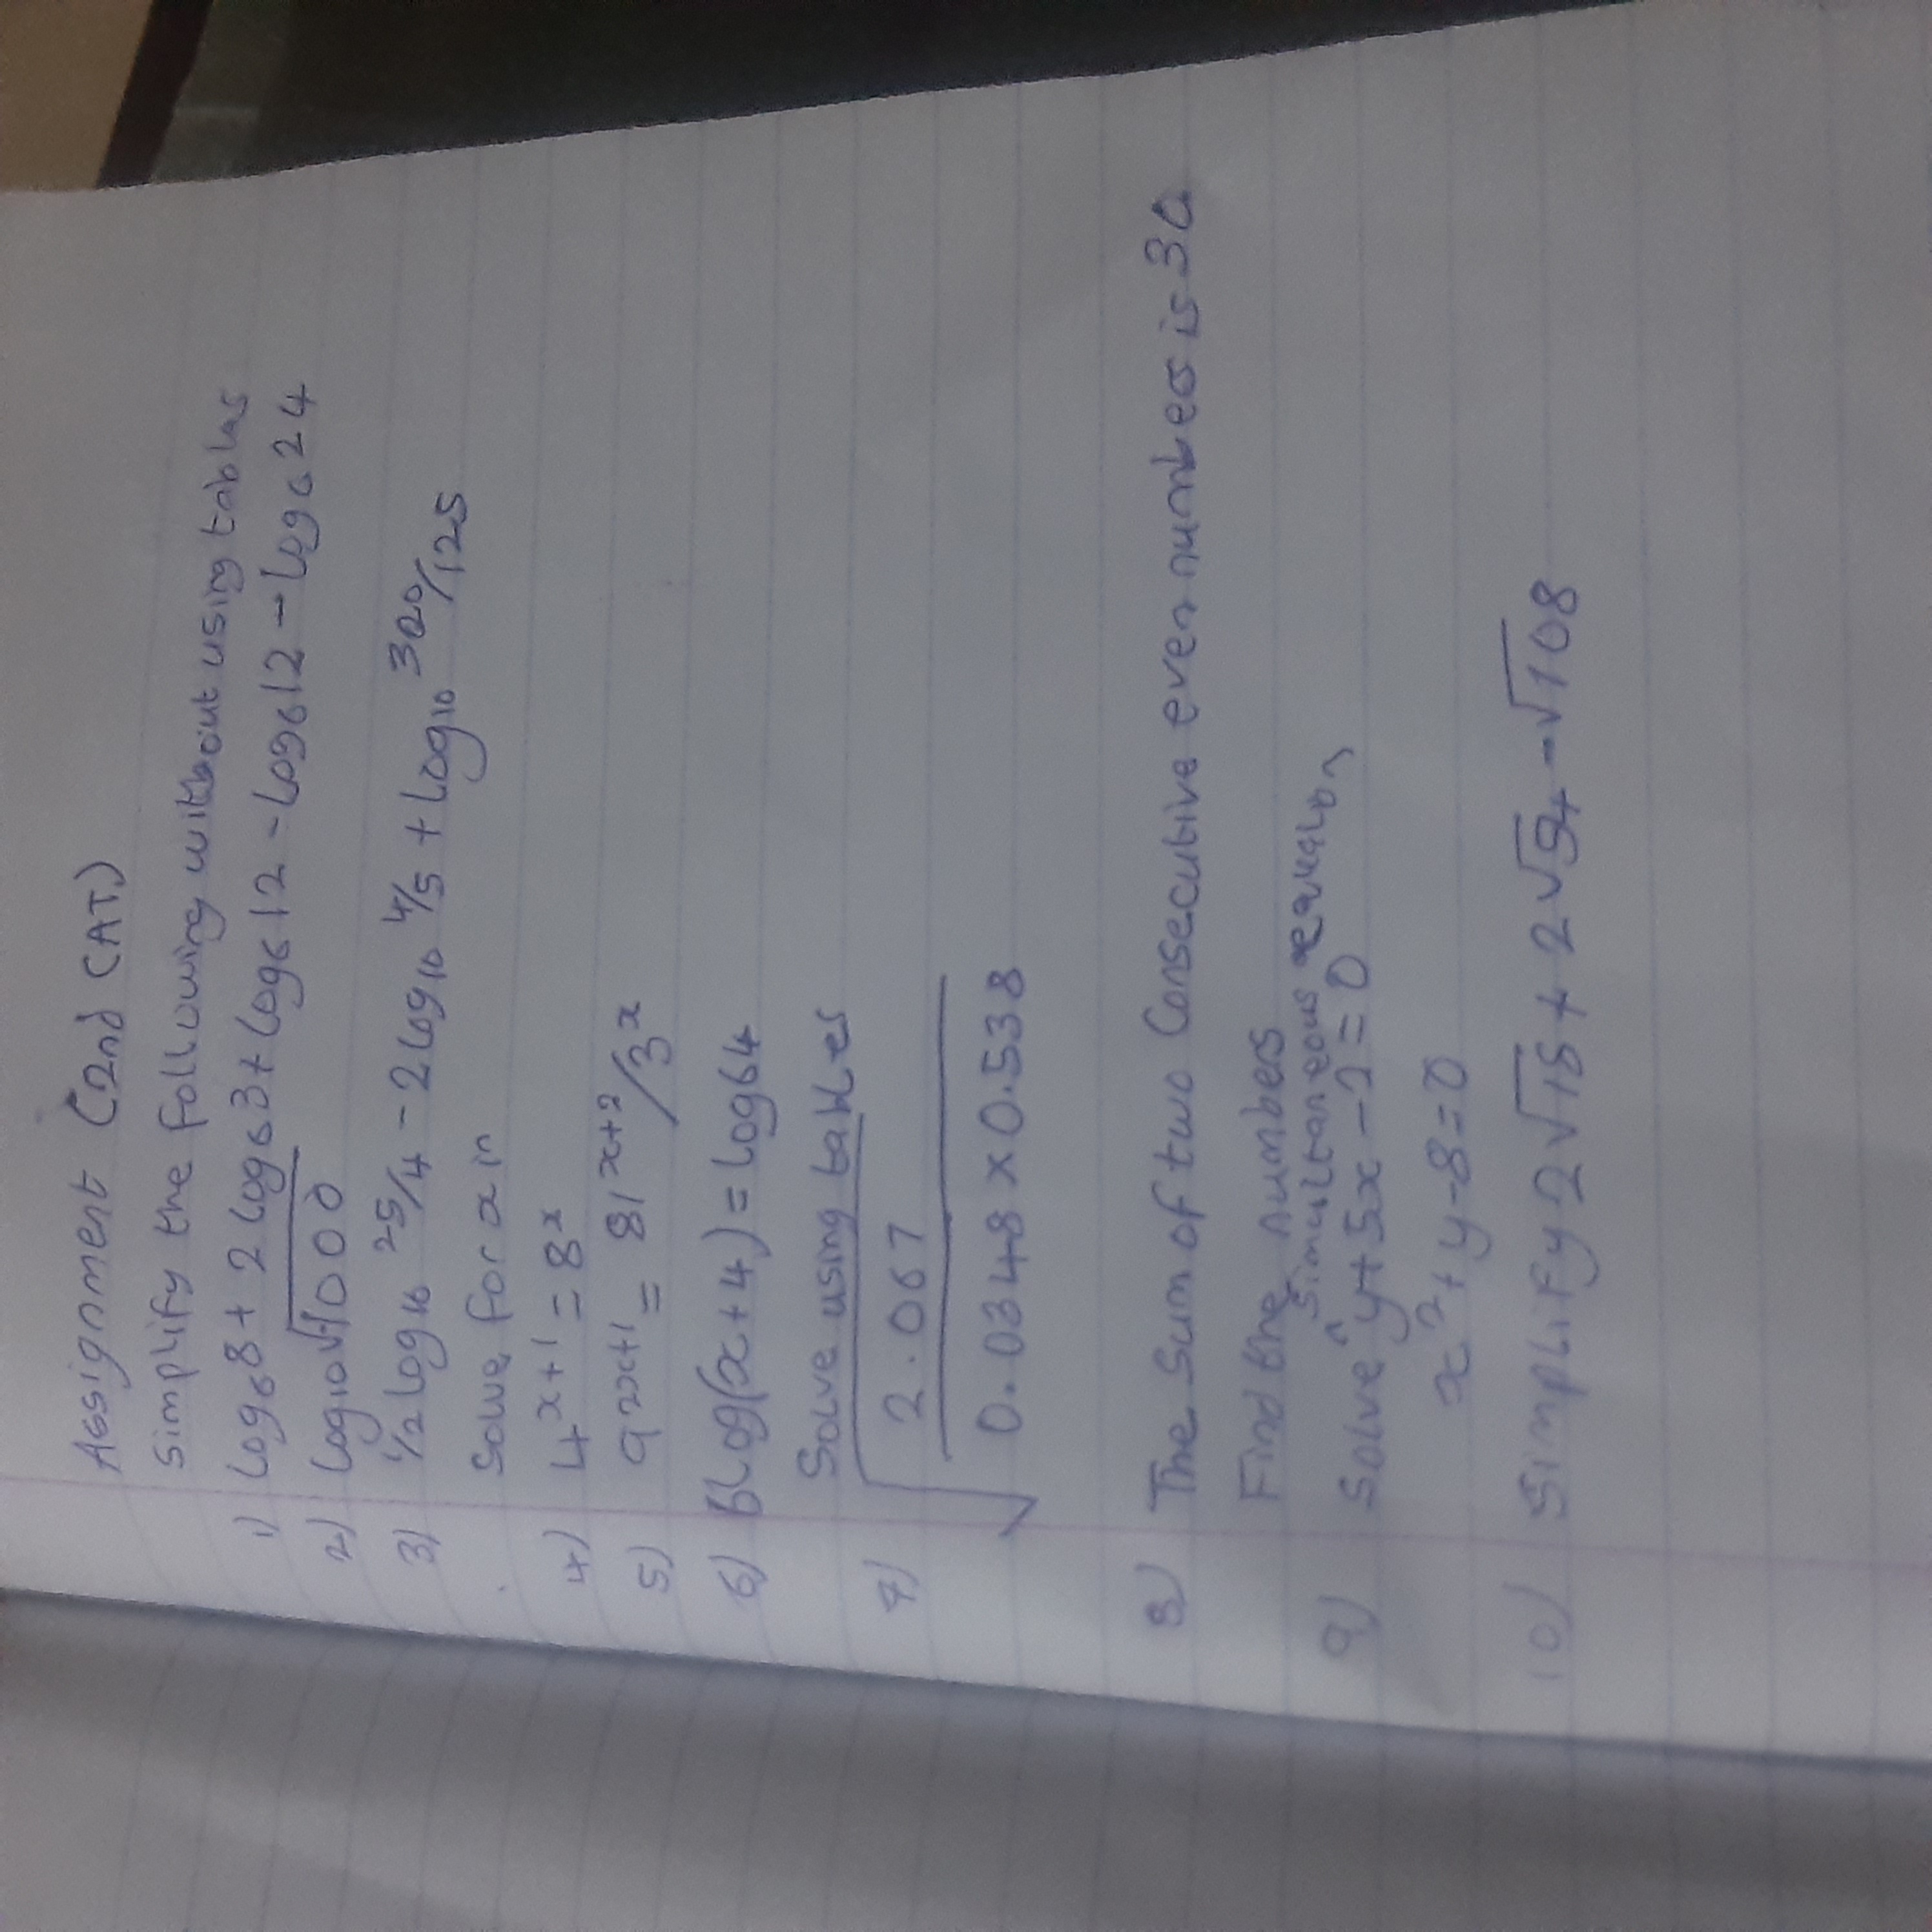 Assignment (2nd CAT)
Simplify the following without using tables
1) log₆8 + 2 log₆3 + log₆12 - log₆12 - log₆24
2) log₁₀√1000
3) ½ log₁₀ 25/4 - 2 log₁₀ 4/5 + log₁₀ 320/125
Solve for x in
4) 4^x+1 = 8^x
5) 9^2x+1 = 81^x+2/3^x
6) 6log(x+4) = log64
Solve using tables
7) √ 2.067
0.0348 x 0.538
8) The Sum of two Consecutive even numbers is 30
Find the numbers
Simultaneous equation
9) Solve ^ y + 5x - 2 = 0
x² + y - 8 = 0
10) Simplify 2√18 + 2√54 - √108